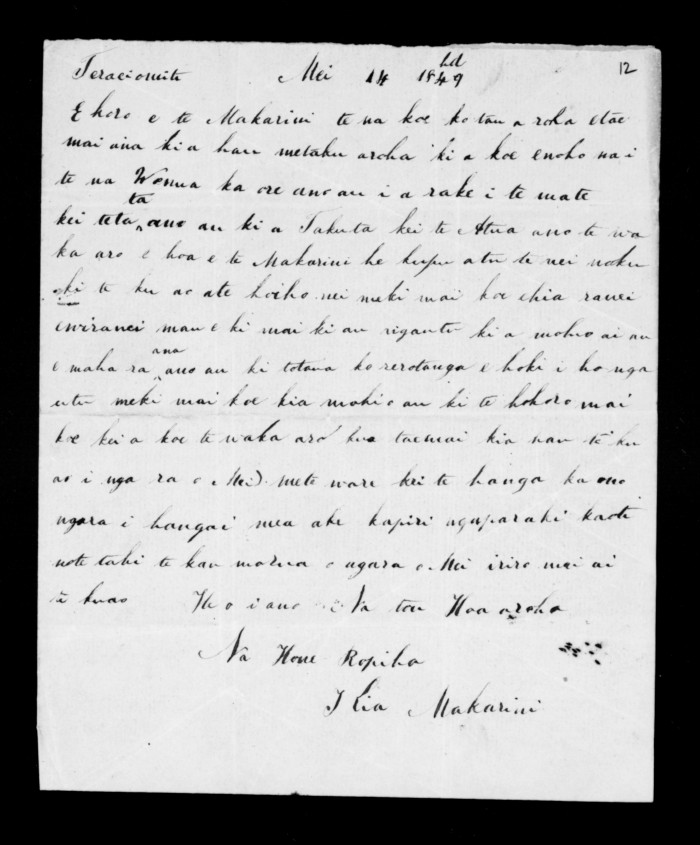 12
Teracionite Mei 14 1849
E horo e te Makarini te na koe ko tau a roha etae
mai ana ki a hau metaku aroha ki a koe enoho nai
te na Wenua ka ore ano au i a rake i te mate
kei teta ta ano au ki a Takuta kei te Atua ano te wa
ka aro e hoa e te Makarini he kupu atu te nei noku
ki te ku ao ate hoiho nei meki mai koe ehia ranei
ewiranei mau e ki mai ki au rigautu ki a mohio ai au
e maha ra ana ano au ki totaua ko rerotanga e hoki i ho nga
utu meki mai koe kia mohio au ki te hohoro mai
koe kei a koe te waka aro hua taemai kia nau te ku
ao i nga ra o Mei mete ware kei te hanga ka ono
ngara i hangai mea ake kapiri nguparaki kaoti
note tahi te kau marua o ngara o Mei iriro mai ai
te kuao Heo i ano Na tou Hoa aroha
Na Hone Ropiha
I Kia Makarini